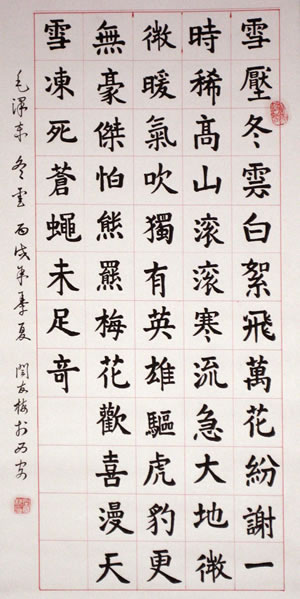 雪壓冬雲白絮飛萬花紛謝一
時稀髙山滚滚寒流急大地微
微暖氣吹獨有英雄驅虎豹更
無豪傑怕熊羆梅花歡喜漫天
雪凍死蒼蠅未足竒
毛澤东 冬雲 丙戌年季夏 閆友梅於西安